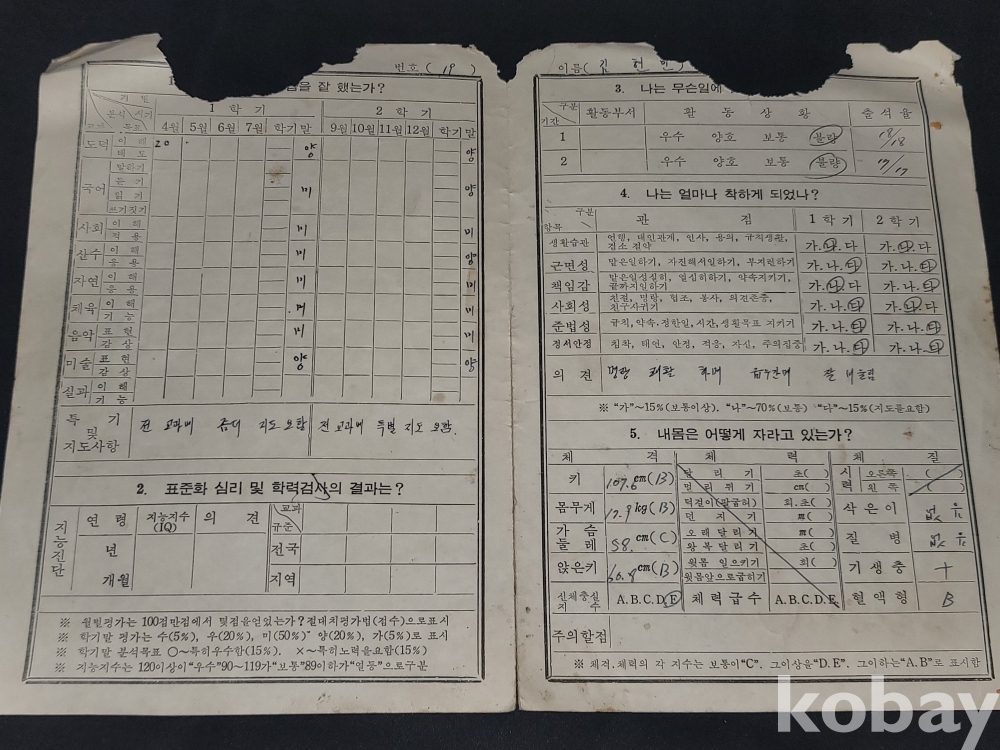 번호( 19 )
을 잘 했는가?
1 학 기
2 학 기
4월 5월 6월 7월 학기말 9월 10월 11월 12월 학기말
도덕 이 해 20 양 양
태 도
말하기
국어 듣 기 미 양
읽 기
쓰기짓기
사회 이 해 미 미
적 용
산수 이 해 미 양
응 용
자연 이 해 미 미
응 용
체육 이 해 미 미
기 능
음악 표 현 미 미
감 상
미술 표 현 양 양
감 상
실과 이 해
기 능
특 기 및 지도사항
전 교과에 지도 요함 전 교과에 특별 지도 요함.
2. 표준화 심리 및 학력검사의 결과는?
지능진단
연 령 지능지수(IQ) 의 견 교과 규준
년 전국
개월 지역
※ 월별평가는 100점만점에서 몇점을얻었는가? 절대치평가법(점수)으로표시
※ 학기말 평가는 수(5%), 우(20%), 미(50%) 양(20%), 가(5%)로 표시
※ 학기말 분석목표 ○~특히우수함(15%). ×~특히노력을요함(15%)
※ 지능지수는 120이상이"우수"90~119가"보통"89이하가"열등"으로구분
이름(
3. 나는 무슨일에
구분 기간 활동부서 활 동 상 황 출 석 율
1 우수 양호 보통 불량 18/18
2 우수 양호 보통 불량 17/17
4. 나는 얼마나 착하게 되었나?
구분 항목 관 점 1 학 기 2 학 기
생활습관 언행, 대인관계, 인사, 용의, 규칙생활, 검소 절약 가.나.다 가.나.다
근면성 맡은일하기, 자진해서일하기, 부지런하기 가.나.다 가.나.다
책임감 맡은일성실히, 열심히하기, 약속지키기, 끝까지일하기 가.나.다 가.나.다
사회성 친절, 명랑, 협조, 봉사, 의견존중, 친구사귀기 가.나.다 가.나.다
준법성 규칙,약속,정한일,시간,생활목표 지키기 가.나.다 가.나.다
정서안정 침착, 태연, 안정, 적응, 자신, 주의집중 가.나.다 가.나.다
의 견 명랑 쾌활 하며
※ "가"~15%(보통이상). "나"~70%(보통) "다"~15%(지도를요함)
5. 내몸은 어떻게 자라고 있는가?
체 격 체 력 체 질
키 107.6cm(B) 달 리 기 초( ) 시력 오른쪽 ( )
멀 리 뛰 기 cm( ) 왼 쪽 ( )
몸무게 17.9kg(B) 턱걸이(팔굽혀) 회.초( ) 색은이 없 음
던 지 기 m( )
가 슴 둘 레 58.cm(C) 오래 달리기 m( ) 질 병 없 음
왕복 달리기 초( )
앉은키 60.9cm(B) 윗몸 일으키기 회( ) 기 생 충 +
윗몸앞으로굽히기
신체충실지 수 A.B.C.D.E 체력급수 A.B.C.D.E 혈액형 B
주의할점
※ 체격.체력의 각 지수는 보통이"C". 그이상을"D.E". 그이하는"A.B"로 표시함
kobay